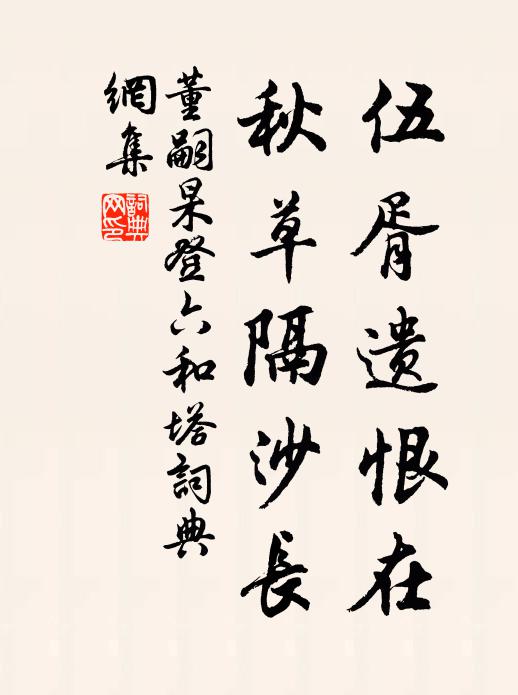 伍胥遗恨在
秋草隔沙長
董嗣杲登六和塔詞典
網集
詞典
网印